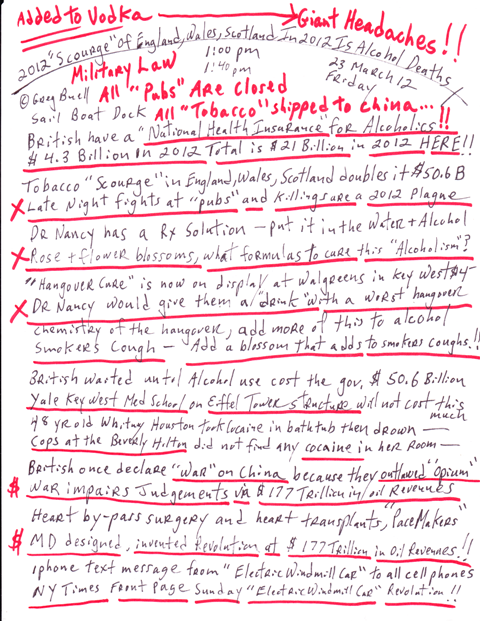 Added to Vodka → Giant Headaches!!
2012 "Scourge" Of England, Wales, Scotland In 2012 Is Alcohol Deaths
Military Law
1:00 pm
1:40 pm
23 March 12
Friday
© Greg Buell All "Pubs" Are Closed
Sail Boat Dock All "Tobacco" shipped to China...!!
British have a "National Health Insurance" for Alcoholics!
$4.3 Billion in 2012 Total is $21 Billion in 2012 HERE!!
Tobacco "Scourge" in England, Wales, Scotland doubles it $50.6B
X Late Night fights at "pubs" and killings are a 2012 Plague
Dr Nancy has a Rx Solution – put it in the water + Alcohol
X Rose + flower blossoms, what formulas to cure this "Alcoholism"?
"Hangover Cure" is now on display at Walgreens in Key West $4-
X Dr Nancy would give them a "drink" with a worst hangover
chemistry of the hangover, add more of this to alcohol
Smokers Cough – Add a blossom that adds to smokers coughs.!!
British waited until Alcohol use cost the gov. $50.6 Billion
Yale Key West Med School on Eiffel Tower structure will not cost this much
48 yr old Whitney Houston took cocaine in bathtub then drown –
Cops at the Beverly Hilton did not find any cocaine in her room –
British once declare "War" on China because they outlawed "Opium"
$ War impairs Judgements via $177 Trillion in oil Revenues
Heart by-pass surgery and heart transplants, "PaceMakers"
$ MD designed, invented Revolution at $177 Trillion in Oil Revenues.!!
iphone text message from "Electric Windmill Car" to all cell phones
NY Times Front Page Sunday "Electric Windmill Car" Revolution!!